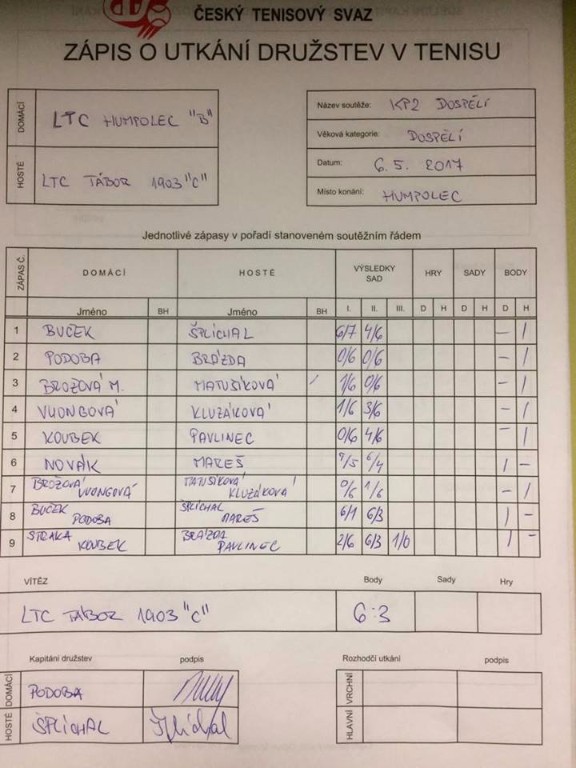 ČESKÝ TENISOVÝ SVAZ
ZÁPIS O UTKÁNÍ DRUŽSTEV V TENISU
DOMÁCÍ LTC HUMPOLEC "B"
HOSTÉ LTC TÁBOR 1903 "C"
Název soutěže: KP2 DOSPĚLÍ
Věková kategorie: DOSPĚLÍ
Datum: 6. 5. 2017
Místo konání: HUMPOLEC
Jednotlivé zápasy v pořadí stanoveném soutěžním řádem
ZÁPAS Č. DOMÁCÍ HOSTÉ VÝSLEDKY SAD HRY SADY BODY
Jméno BH Jméno BH I. II. III. D H D H D H
1 BUČEK ŠPLÍCHAL 6/7 4/6 – 1
2 PODOBA BRÁZDA 0/6 0/6 – 1
3 BROŽOVÁ M. MATUŠÍKOVÁ 1/6 0/6 – 1
4 VUONGOVÁ KLUZÁKOVÁ 1/6 3/6 – 1
5 KOUBEK PAVLINEC 0/6 4/6 – 1
6 NOVÁK MAREŠ 7/5 6/4 1 –
7 BROŽOVÁ VUONGOVÁ MATUŠÍKOVÁ KLUZÁKOVÁ 0/6 1/6 – 1
8 BUČEK PODOBA ŠPLÍCHAL MAREŠ 6/1 6/3 1 –
9 STRAKA KOUBEK BRÁZDA PAVLINEC 2/6 6/3 1/0 1 –
VÍTĚZ Body Sady Hry
LTC TÁBOR 1903 "C" 6:3
Kapitání družstev podpis Rozhodčí utkání podpis
DOMÁCÍ PODOBA VRCHNÍ
HOSTÉ ŠPLÍCHAL Šplíchal HLAVNÍ